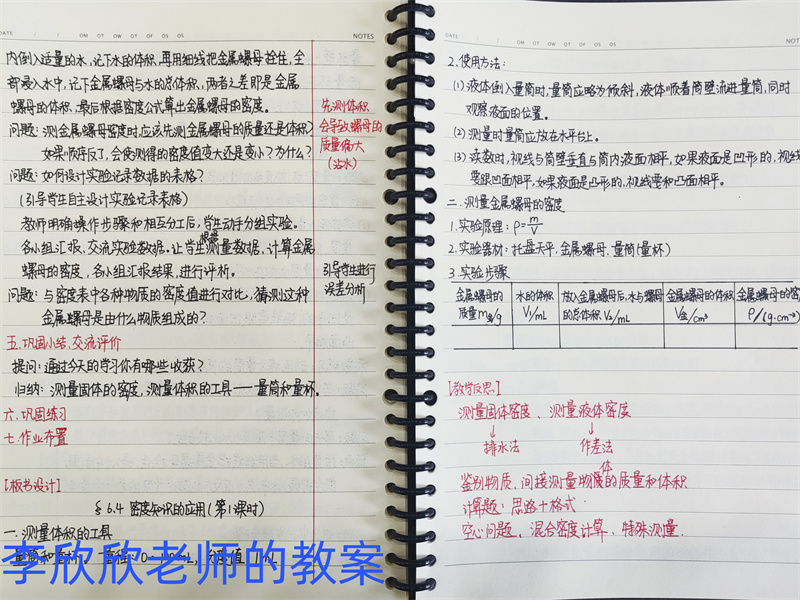 DATE
NOTES
内倒入适量的水,记下水的体积,再用细线把金属螺母拴住,全
部浸入水中,记下金属螺母与水的总体积,两者之差即是金属
螺母的体积,最后根据密度公式算出金属螺母的密度。
问题:测金属螺母密度时,应该先测金属螺母的质量还是体积?
如果顺序反了,会使测得的密度值变大还是变小?为什么?
先测体积
会导致螺母的
质量偏大
(沾水)
问题:如何设计实验记录数据的表格?
(引导学生自主设计实验记录表格)
教师明确操作步骤和相互分工后,学生动手分组实验。
各小组汇报,交流实验数据。让学生根据测量数据,计算金属
螺母的密度,各小组汇报结果,进行评析。
引导学生进行
误差分析
问题:与密度表中各种物质的密度值进行对比,猜测这种
金属螺母是由什么物质组成的?
五.巩固小结,交流评价
提问:通过今天的学习你有哪些收获?
归纳:测量固体的密度,测量体积的工具——量筒和量杯。
六.巩固练习
七.作业布置
[板书设计]
§6.4 密度知识的应用(第1课时)
一.测量体积的工具
李欣欣老师的教案
DATE
NOTES
2.使用方法:
(1)液体倒入量筒时,量筒应略为倾斜,液体顺着筒壁流进量筒,同时
观察液面的位置。
(2)测量时量筒应放在水平台上。
(3)读数时,视线与筒壁垂直与筒内液面相平,如果液面是凹形的,视线
要跟凹面相平,如果液面是凸形的,视线要和凸面相平。
二.测量金属螺母的密度
1.实验原理:ρ=m/V
2.实验器材:托盘天平.金属螺母.量筒(量杯)
3.实验步骤
金属螺母的质量m金/g 水的体积V₁/mL 放入金属螺母后,水与螺母的总体积V₂/mL 金属螺母的体积V金/cm³ 金属螺母的密 ρ/(g·cm⁻³)
[教学反思]
测量固体密度、测量液体密度
↓ ↓
排水法 作差法
鉴别物质、间接测量物体的质量和体积
计算题:思路+格式.
空心问题、混合密度计算、特殊测量.